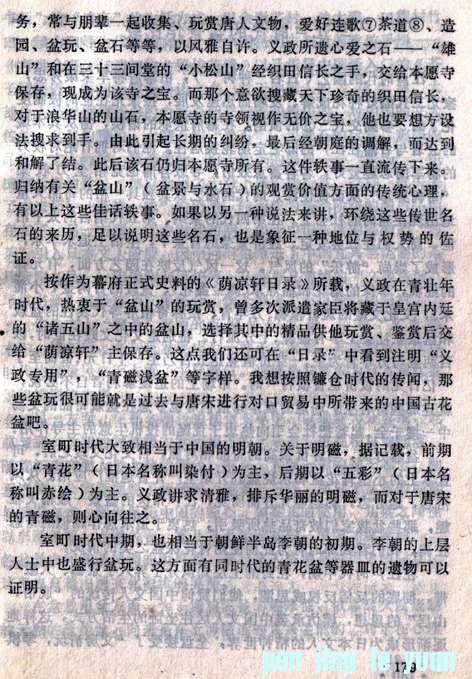 务，常与朋辈一起收集、玩赏唐人文物，爱好连歌⑦茶道⑧、造
园、盆玩、盆石等等，以风雅自许。义政所遗心爱之石——“雄
山”和在三十三间堂的“小松山”经织田信长之手，交给本愿寺
保存，现成为该寺之宝。而那个意欲搜藏天下珍奇的织田信长，
对于浪华山的山石，本愿寺的寺领视作无价之宝，他也要想方设
法搜求到手。由此引起长期的纠纷，最后经朝庭的调解，而达到
和解了结。此后该石仍归本愿寺所有。这件轶事一直流传下来。
归纳有关“盆山”（盆景与水石）的观赏价值方面的传统心理，
有以上这些佳话轶事。如果以另一种说法来讲，环绕这些传世名
石的来历，足以说明这些名石，也是象征一种地位与权势的佐
证。
按作为幕府正式史料的《荫凉轩日录》所载，义政在青壮年
时代，热衷于“盆山”的玩赏，曾多次派遣家臣将藏于皇宫内廷
的“诸五山”之中的盆山，选择其中的精品供他玩赏、鉴赏后交
给“荫凉轩”主保存。这点我们还可在“日录”中看到注明“义
政专用”，“青磁浅盆”等字样。我想按照镰仓时代的传闻，那
些盆玩很可能就是过去与唐宋进行对口贸易中所带来的中国古花
盆吧。
室町时代大致相当于中国的明朝。关于明磁，据记载，前期
以“青花”（日本名称叫染付）为主，后期以“五彩”（日本名
称叫赤绘）为主。义政讲求清雅，排斥华丽的明磁，而对于唐宋
的青磁，则心向往之。
室町时代中期，也相当于朝鲜半岛李朝的初期。李朝的上层
人士中也盛行盆玩。这方面有同时代的青花盆等器皿的遗物可以
证明。
179
pen jing le yuan